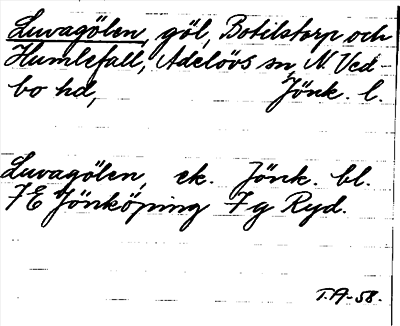 Luvagölen, göl, Botilstorp och
Humlefall, Adelövs sn, N Ved-
bo hd, Jönk. l.
Luvagölen, ek. Jönk. bl.
7E Jönköping 7g Ryd.
T.A-58.